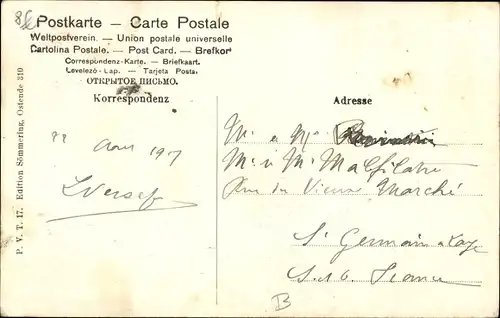 Postkarte – Carte Postale
Weltpostverein. – Union postale universelle
Cartolina Postale. – Post Card. – Brefkort
Correspondenz-Karte. – Briefkaart.
Levelező-Lap. – Tarjeta Posta.
ОТКРЫТОЕ ПИСЬМО.
Korrespondenz
Adresse
P. V. T. 17. Edition Sömmering, Ostende 310
M. e M.
M. i M. Malfilatre
Rue du Vieux Marché
St Germain e Laye
S. e O. France
B